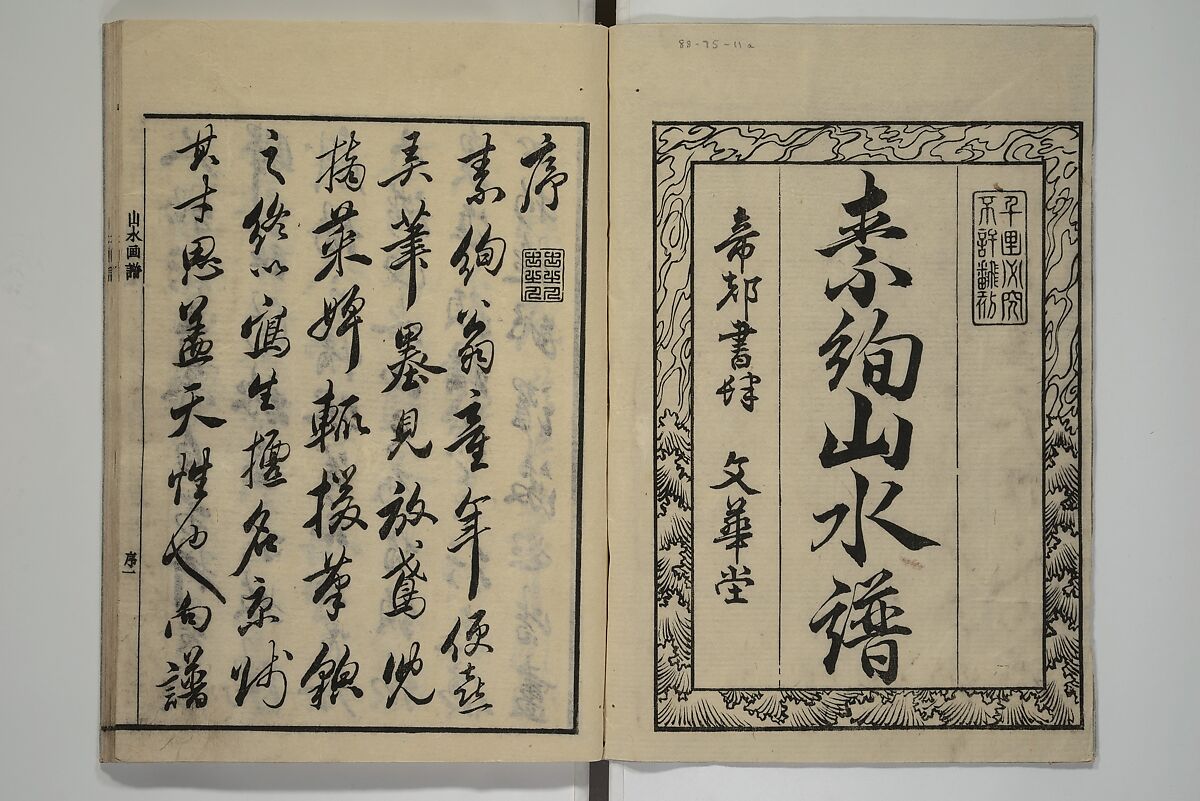 88-75-11a
千里必究
不許翻刻
素絢山水譜
帝都書肆 文華堂
序
素絢翁童年便喜
弄筆墨見放鳶兒
摘菜婢輒援筆貌
之終以寫生擅名京師
其才思蓋天性也向譜
山水画譜 序一